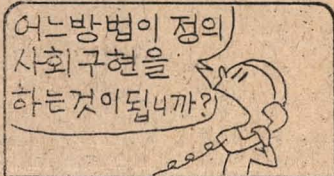 어느방법이 정의
사회구현을
하는것이됩니까?